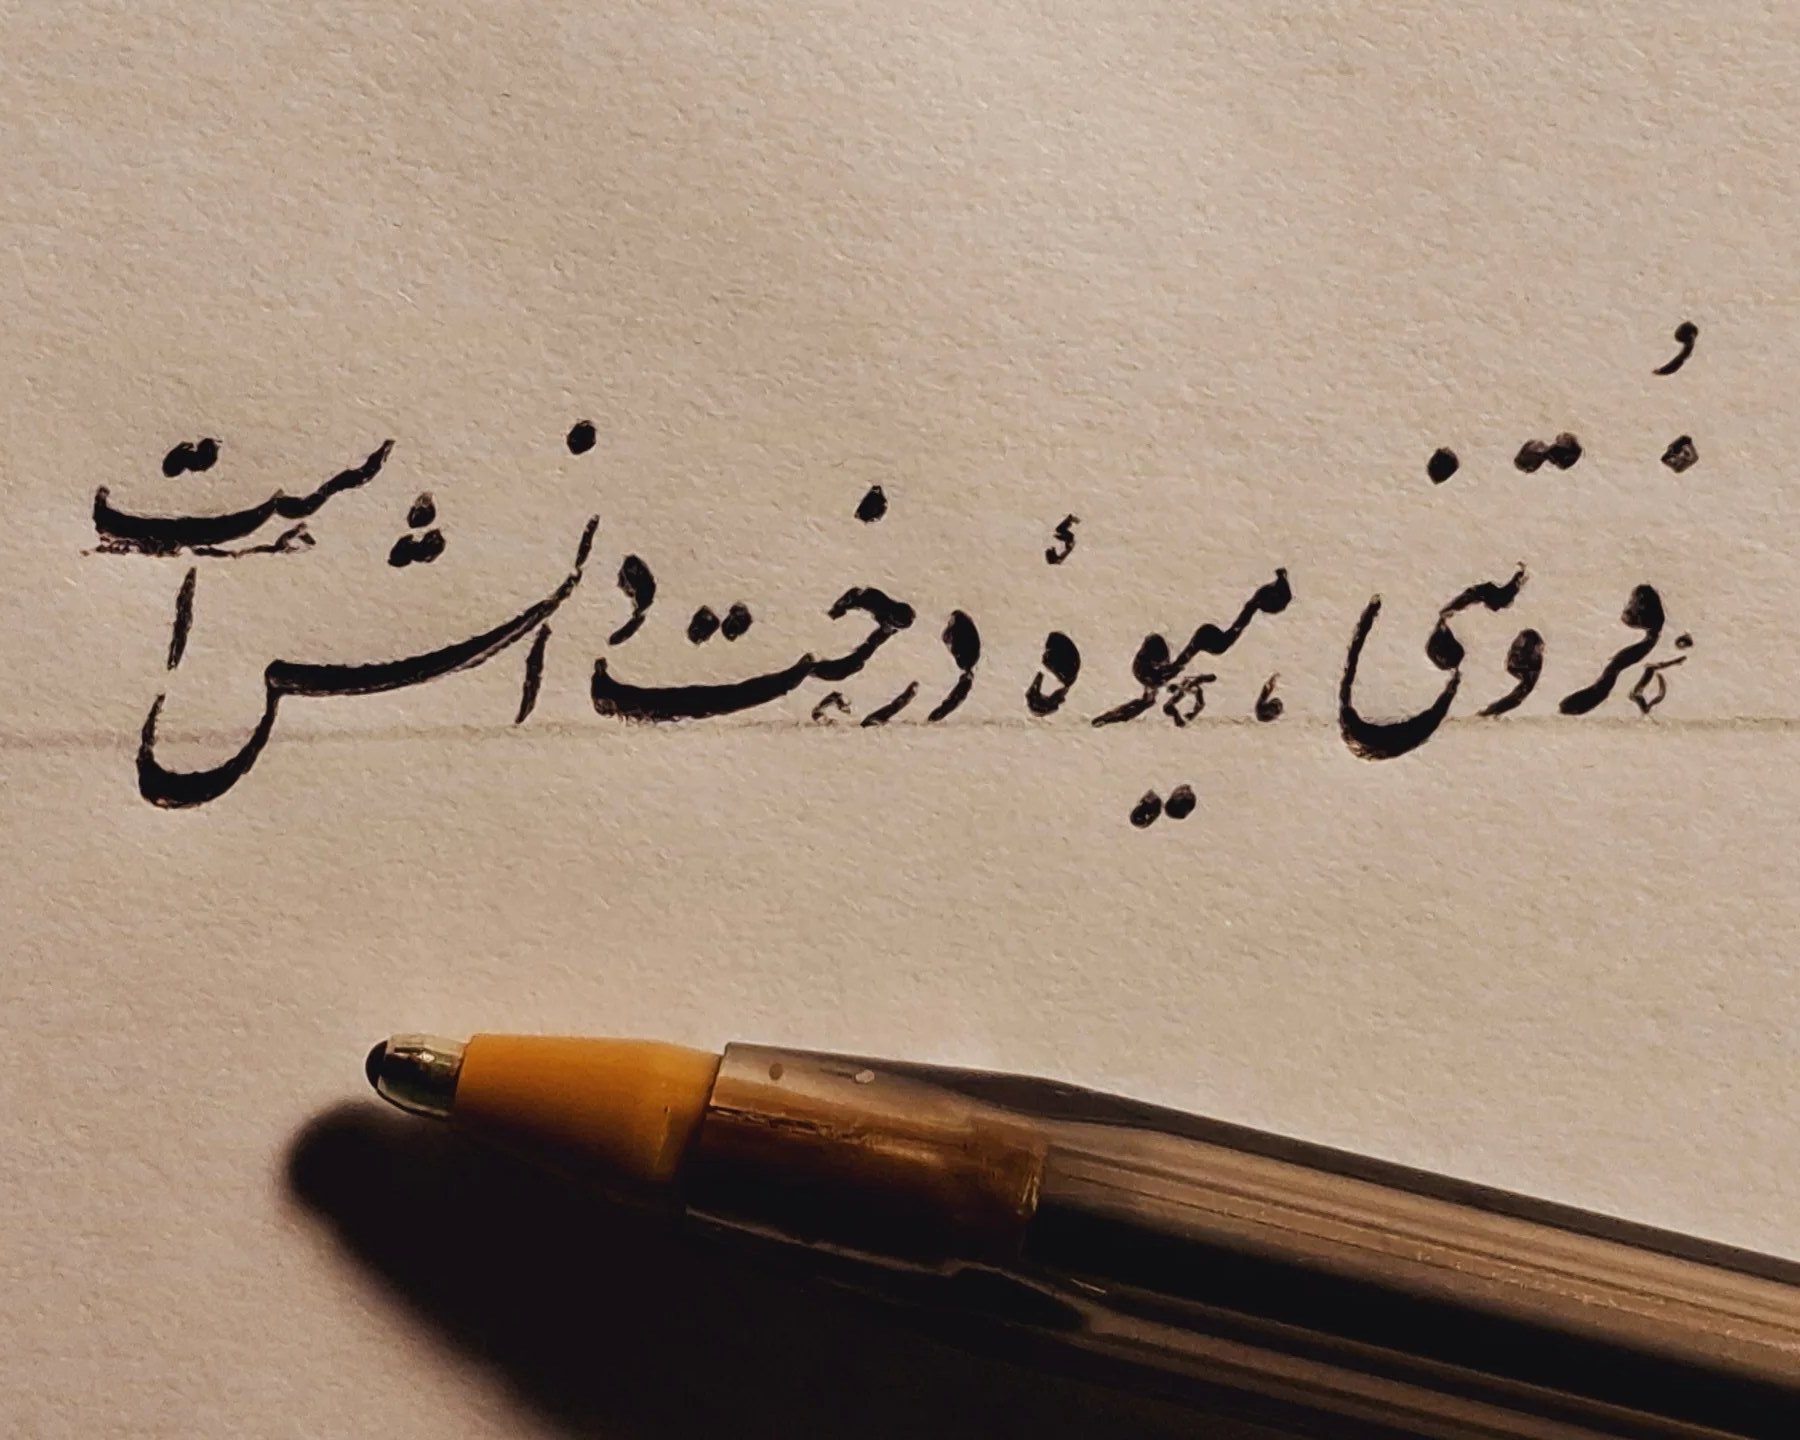 فُروتنی، میوهٔ درخت دانش است